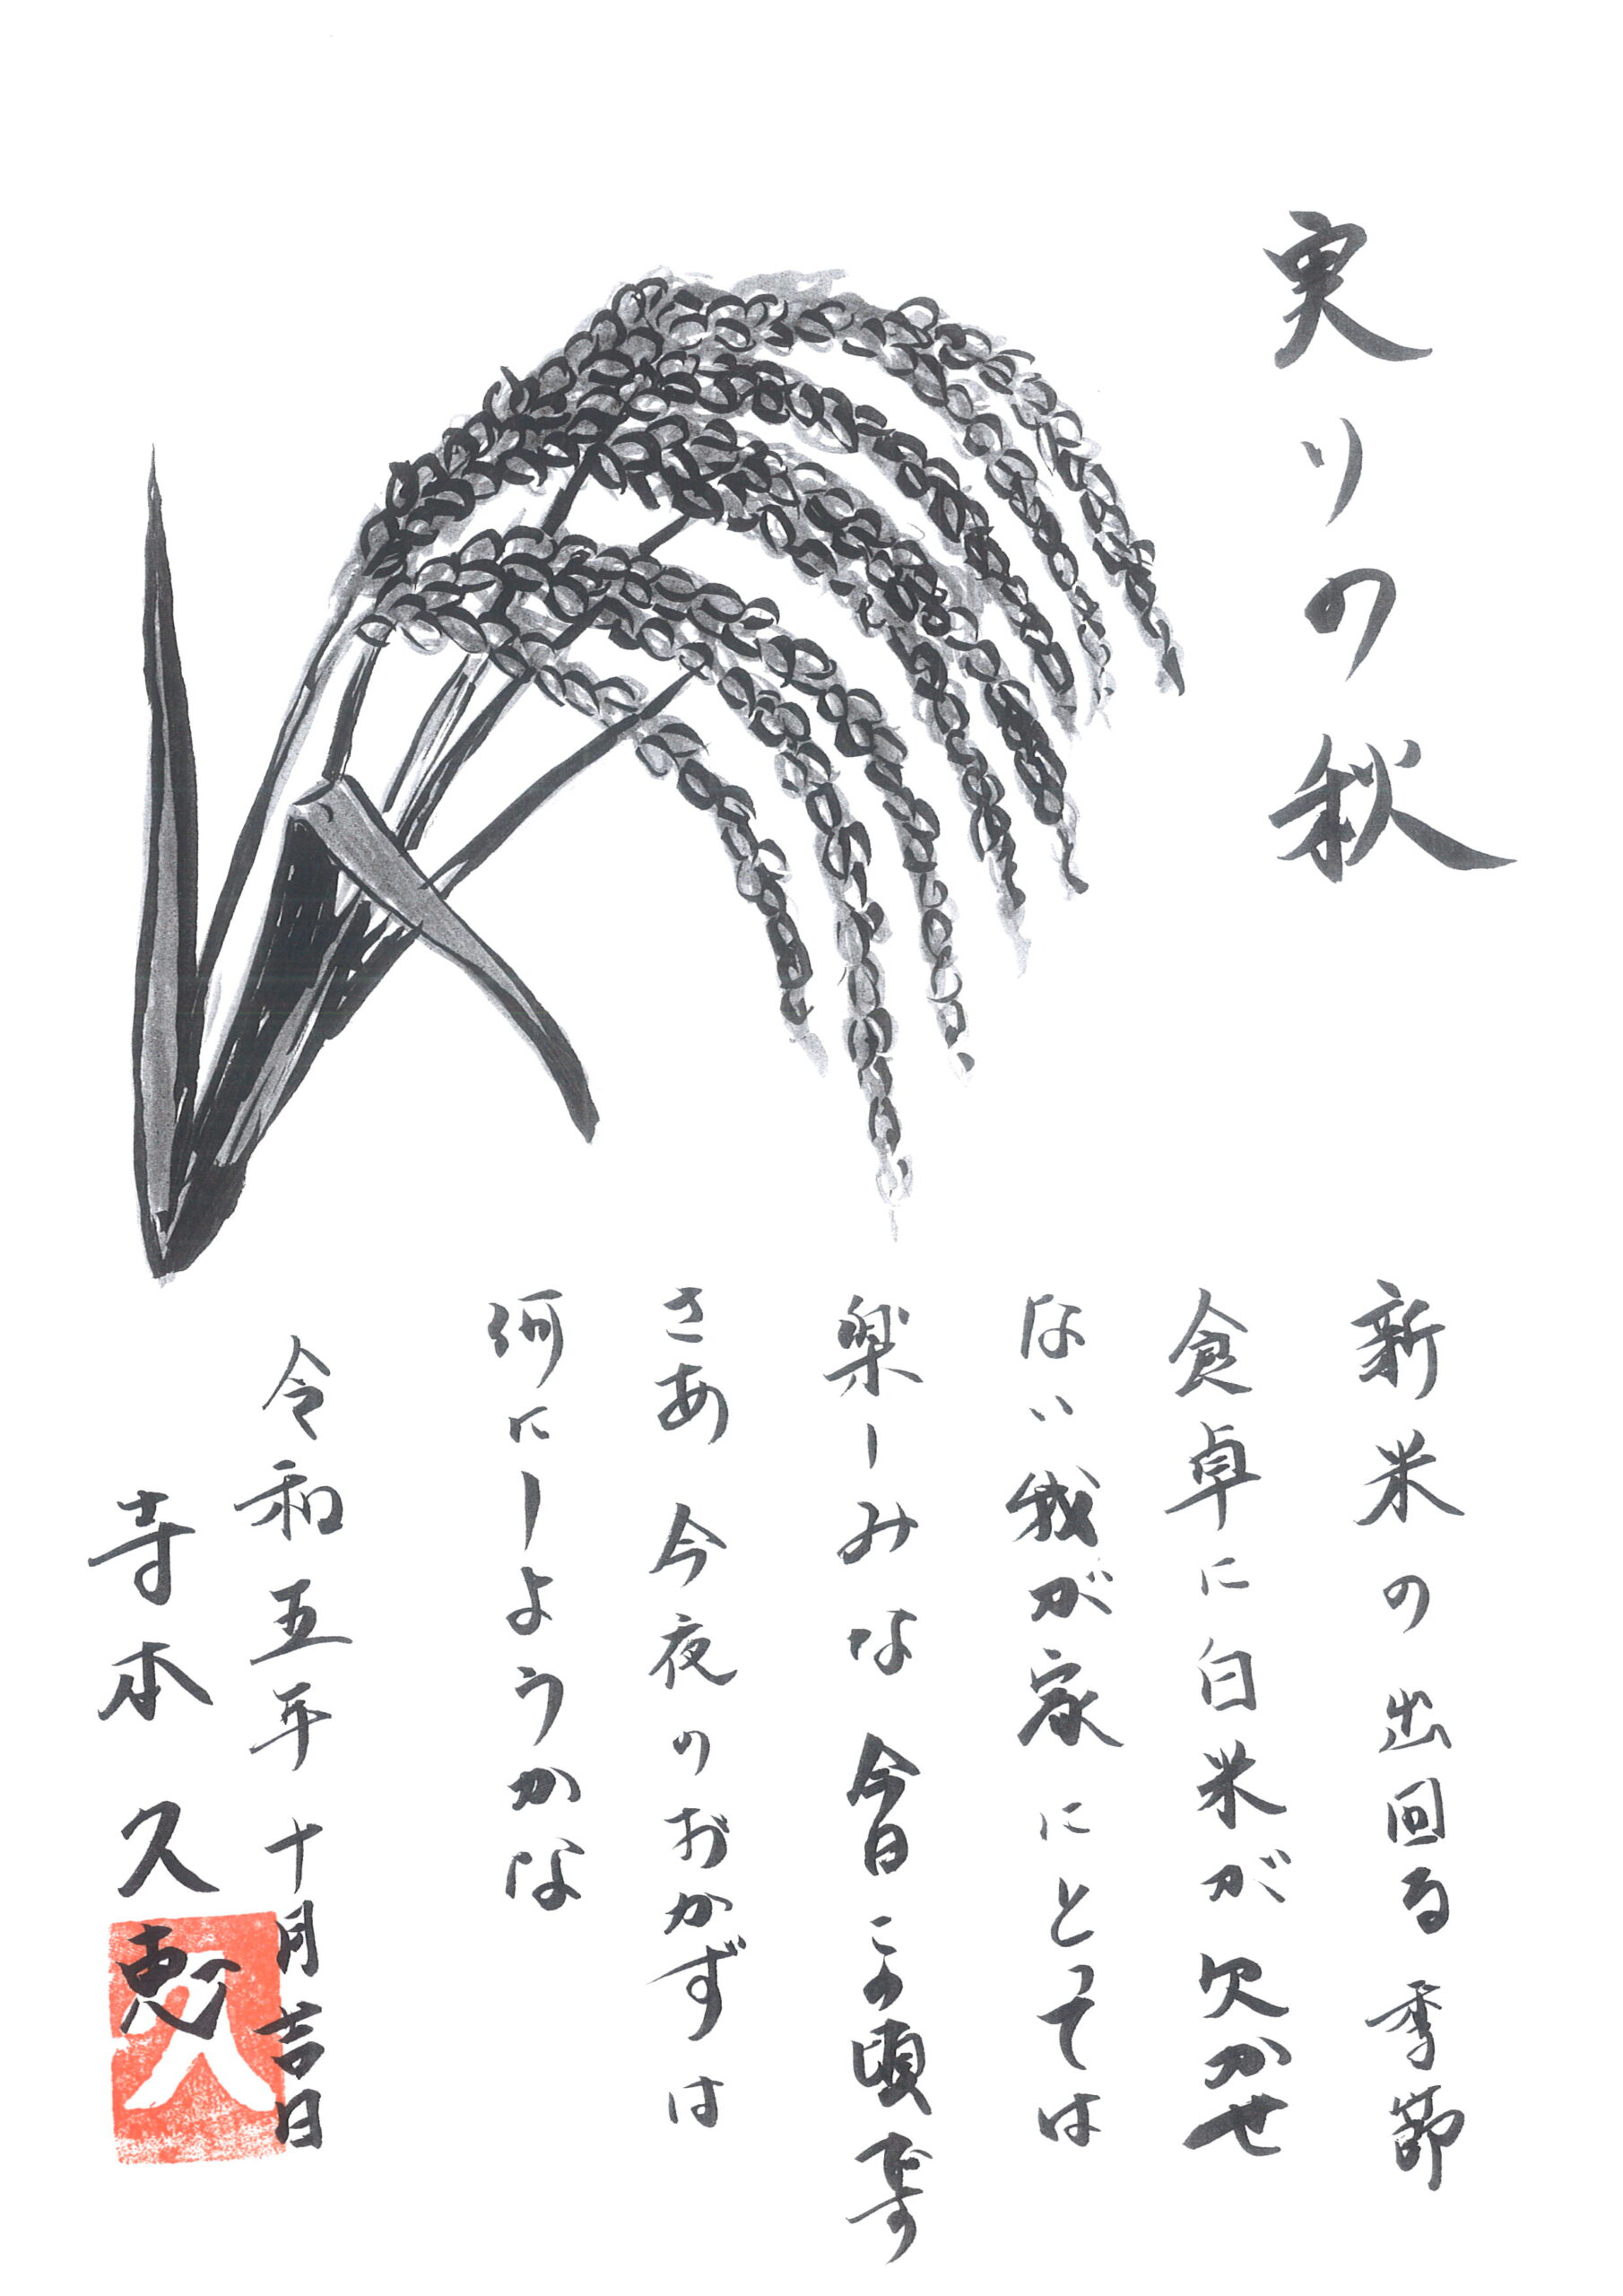 実りの秋
新米の出回る季節
食卓に白米が欠かせ
ない我が家にとっては
楽しみな今日この頃です
さあ今夜のおかずは
何にしようかな
令和五年十月吉日
寺本久恵
久